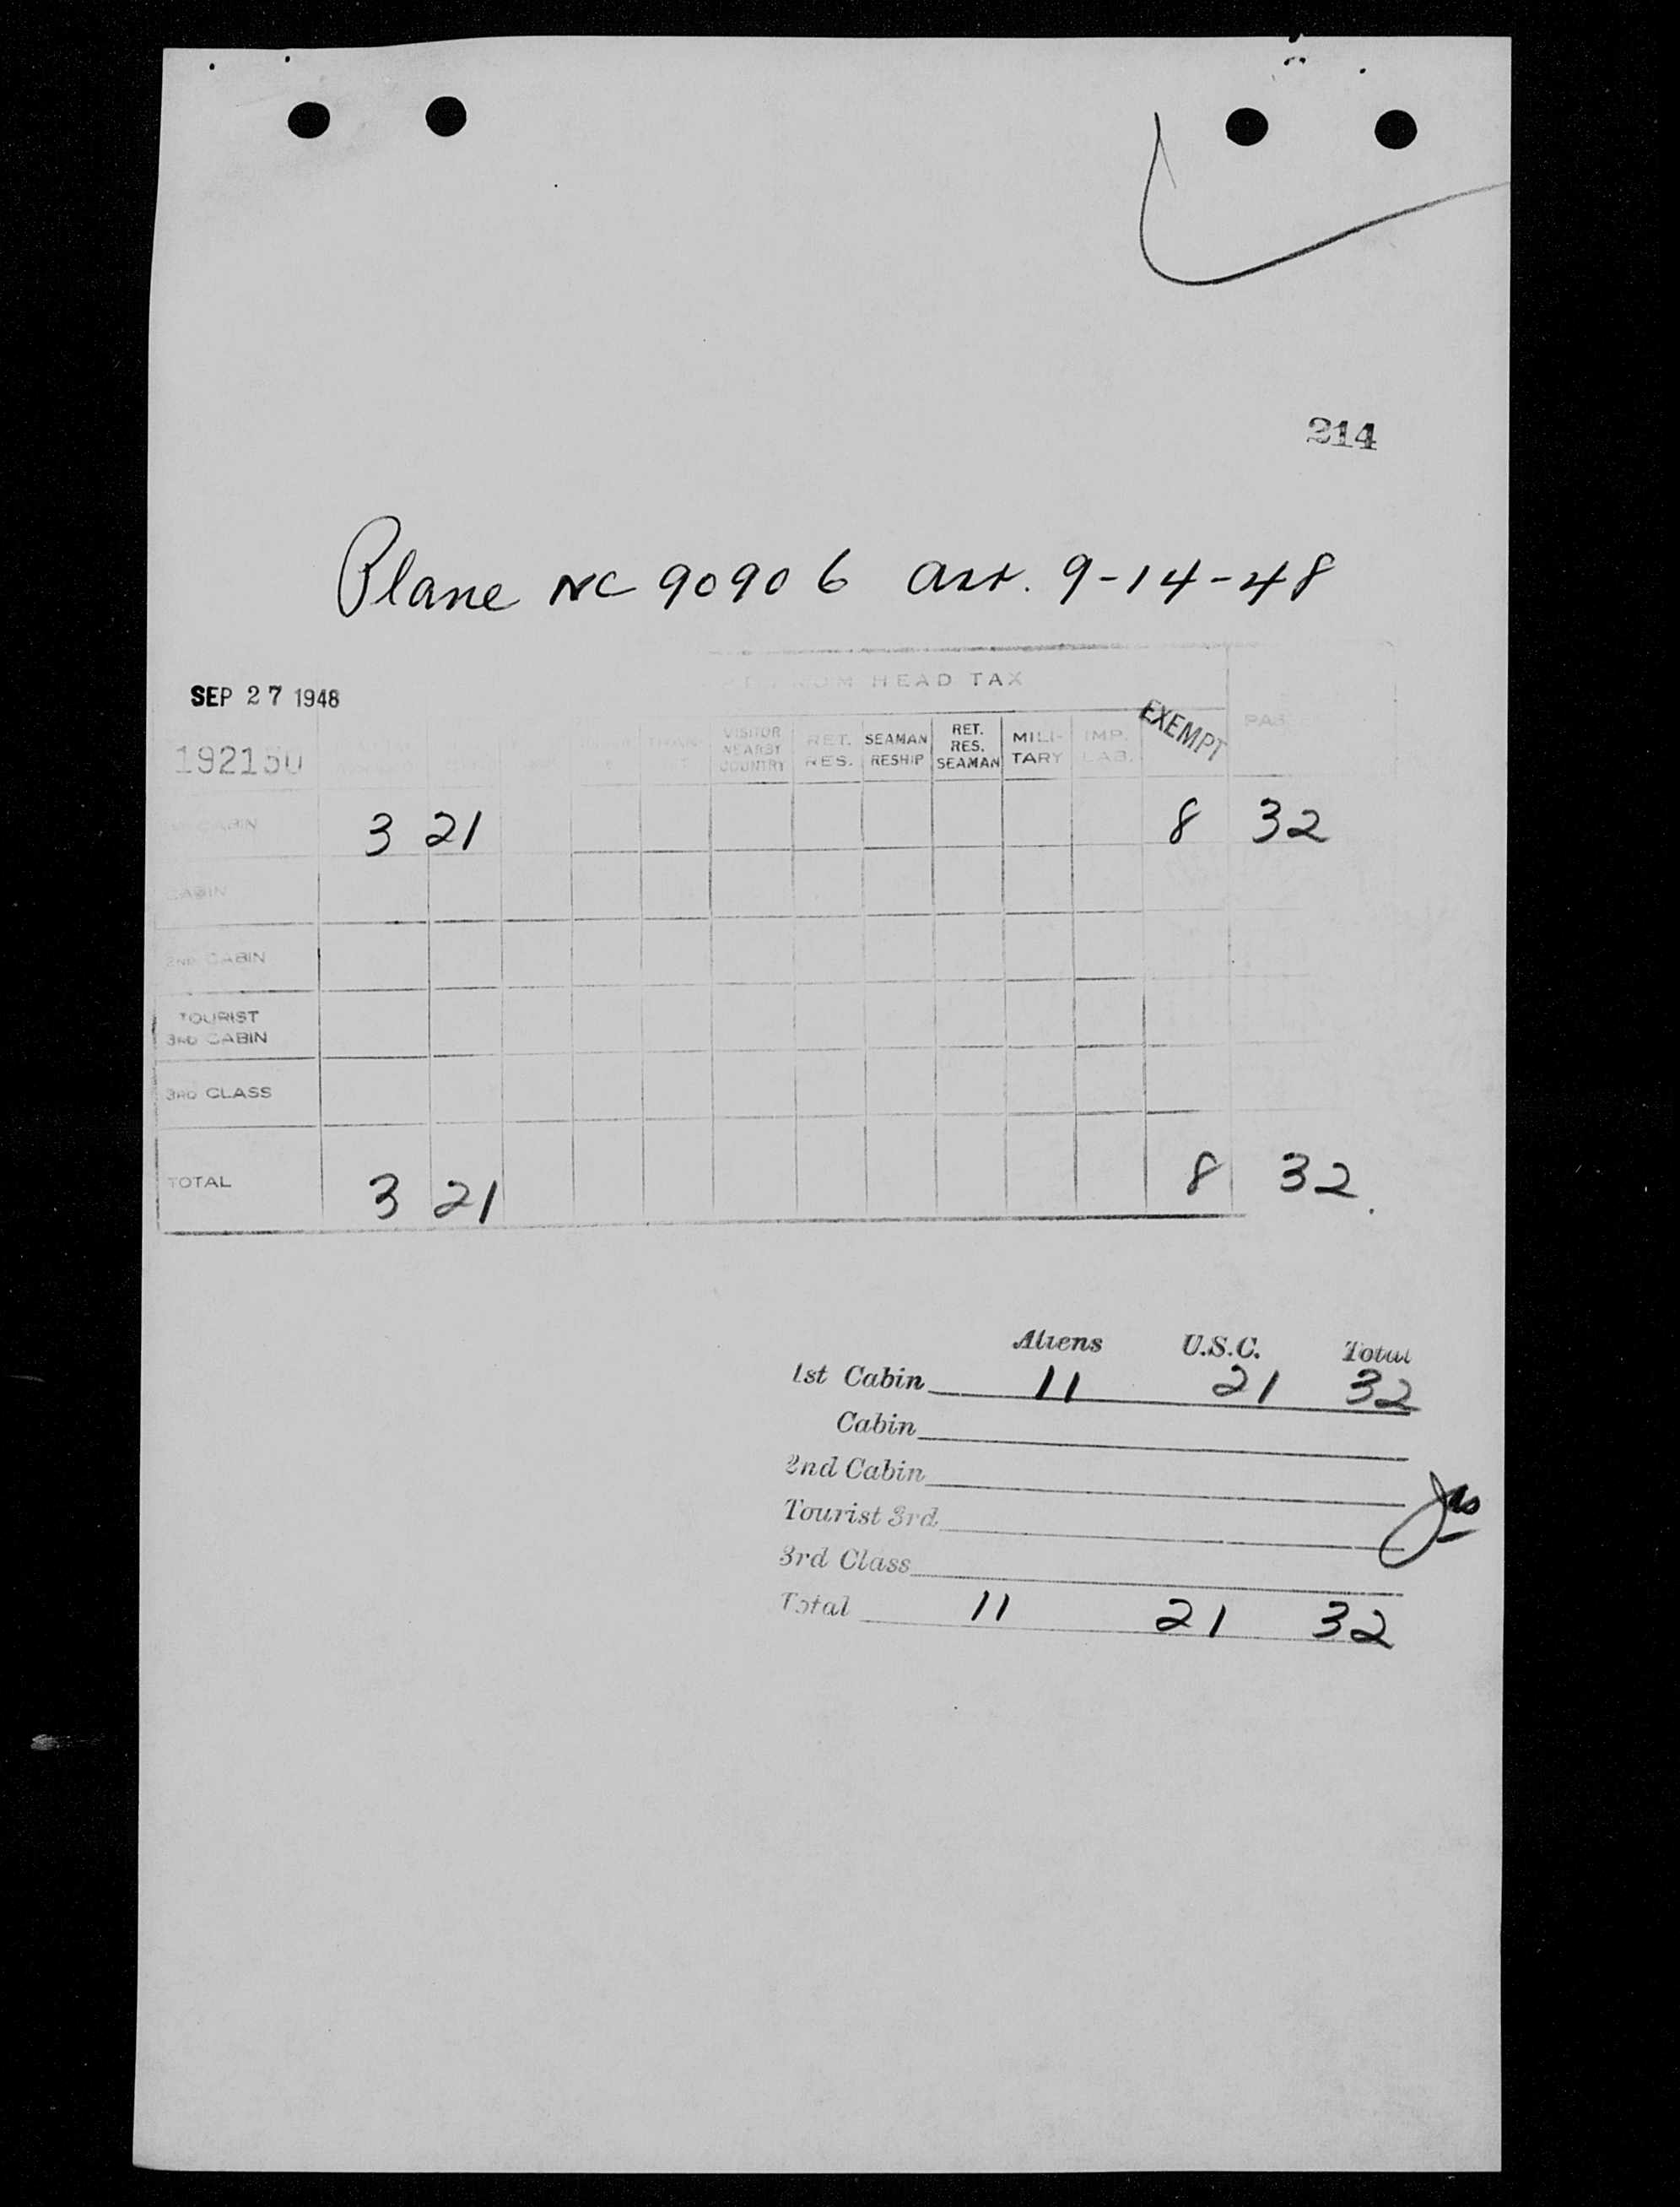 214
Plane NC 90906 arr. 9-14-48
HEAD TAX
SEP 27 1948
VISITOR NEARBY COUNTRY RET. RES. SEAMAN RESHIP RET. RES. SEAMAN MILI-TARY IMP. LAB. EXEMPT
CABIN 3 21 8 32
CABIN
2ND CABIN
TOURIST
3RD CABIN
3RD CLASS
TOTAL 3 21 8 32
Aliens U.S.C. Total
1st Cabin 11 21 32
Cabin
2nd Cabin
Tourist 3rd
3rd Class
Total 11 21 32